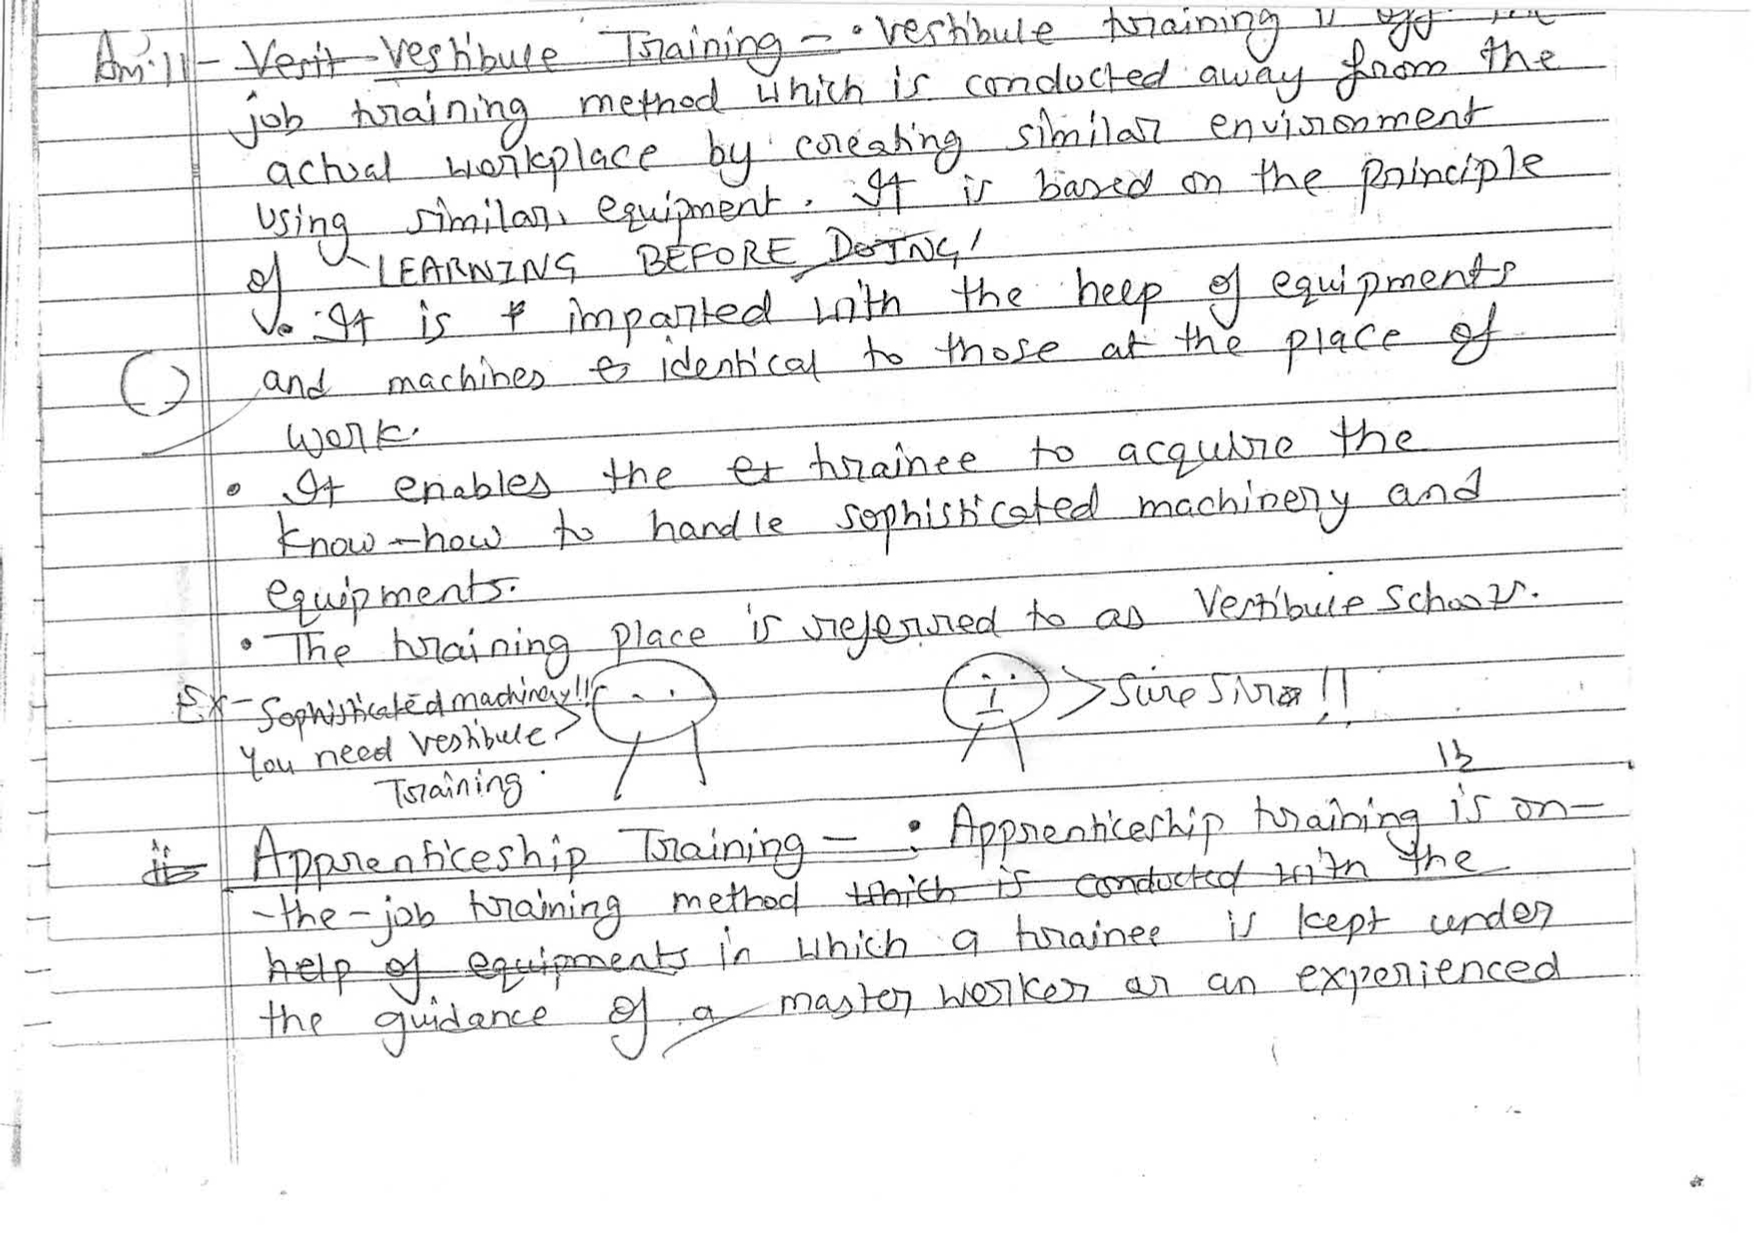 Ans.11- Verit Vestibule Training - • Vestibule training is off the
job training method which is conducted away from the
actual workplace by creating similar environment
using similar equipment. It is based on the principle
of 'LEARNING BEFORE DOING'
• It is imparted with the help of equipments
and machines identical to those at the place of
work.
• It enables the et trainee to acquire the
know-how to handle sophisticated machinery and
equipments.
• The training place is referred to as Vestibule Schools.
Ex- Sophisticated machinery!!
You need Vestibule
Training.
Sure Sir !!
ii Apprenticeship Training - • Apprenticeship training is on-
-the-job training method which is conducted with the
help of equipments in which a trainee is kept under
the guidance of a master worker or an experienced